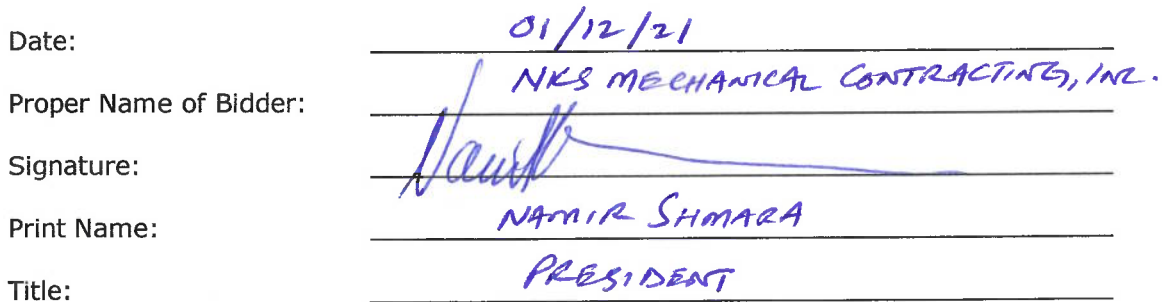 Date: 01/12/21
Proper Name of Bidder: NKS MECHANICAL CONTRACTING, INC.
Signature:
Print Name: NAMIR SHMARA
Title: PRESIDENT